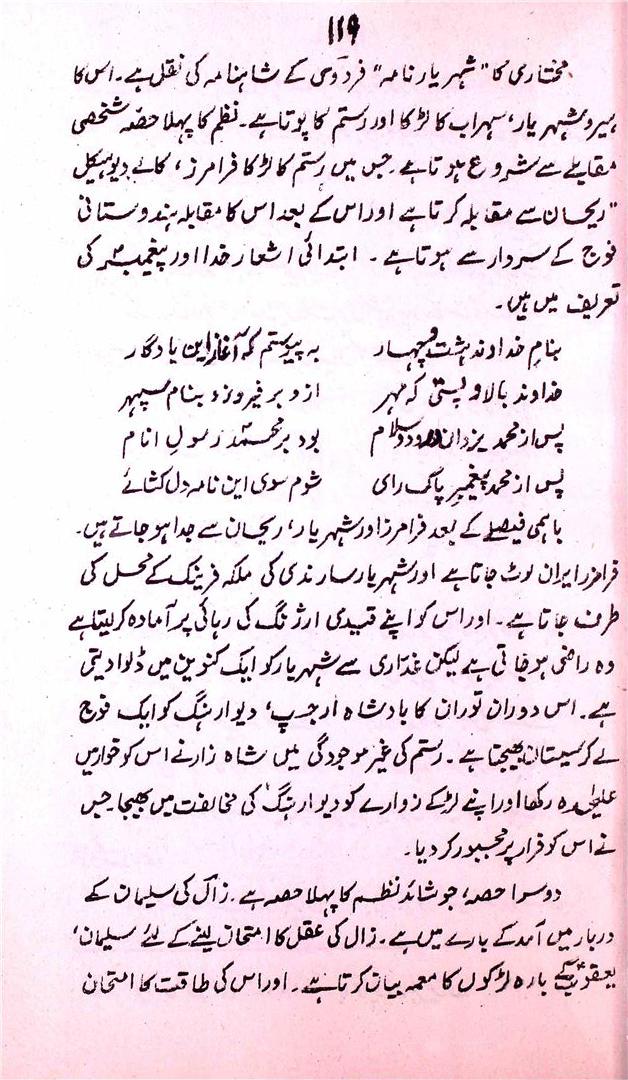 ۱۱۹
مختاری کا "شہریار نامہ" فردوسی کے شاہنامہ کی نقل ہے۔ اس کا
ہیرو شہریار، سہراب کا لڑکا اور رستم کا پوتا ہے۔ نظم کا پہلا حصہ شخصی
مقابلے سے شروع ہوتا ہے جس میں رستم کا لڑکا فرامرز، کالے دیو ہیکل
"ریحان سے مقابلہ کرتا ہے اور اس کے بعد اس کا مقابلہ ہندوستانی
فوج کے سردار سے ہوتا ہے۔ ابتدائی اشعار خدا اور پیغمبر کی
تعریف میں ہیں۔
بنام خداوند ہشت و چہار بہ پیوستم کہ آغاز این یادگار
خداوند بالا و پستی کہ مہر ازو بر فیروزد بنام سپہر
پس از محمد یزدان درود و سلام بود بر محمد رسول انام
پس از محمد پیغمبر پاک رای شوم سوی این نامہ دل کشائے
باہمی فیصلے کے بعد فرامرز اور شہریار، ریحان سے جدا ہو جاتے ہیں۔
فرامرز ایران لوٹ جاتا ہے اور شہریار سارندی کی ملکہ فرینک کے محل کی
طرف جاتا ہے۔ اور اس کو اپنے قیدی ارژنگ کی رہائی پر آمادہ کر لیتا ہے
وہ راضی ہو جاتی ہے لیکن غداری سے شہریار کو ایک کنویں میں ڈلوا دیتی
ہے۔ اس دوران توران کا بادشاہ ارجسپ، دیو ارہنگ کو ایک فوج
لے کر سیستان بھیجتا ہے۔ رستم کی غیر موجودگی میں شاہ زار نے اس کو خوار میں
علیحدہ رکھا اور اپنے لڑکے زوارے کو دیو ارہنگ کی مخالفت میں بھیجا جس
نے اس کو فرار پر مجبور کر دیا۔
دوسرا حصہ، جو شائد نظم کا پہلا حصہ ہے۔ زال کی سلیمان کے
دربار میں آمد کے بارے میں ہے۔ زال کی عقل کا امتحان لینے کے لئے سلیمان،
یعقوب کے بارہ لڑکوں کا معمہ بیان کرتا ہے۔ اور اس کی طاقت کا امتحان